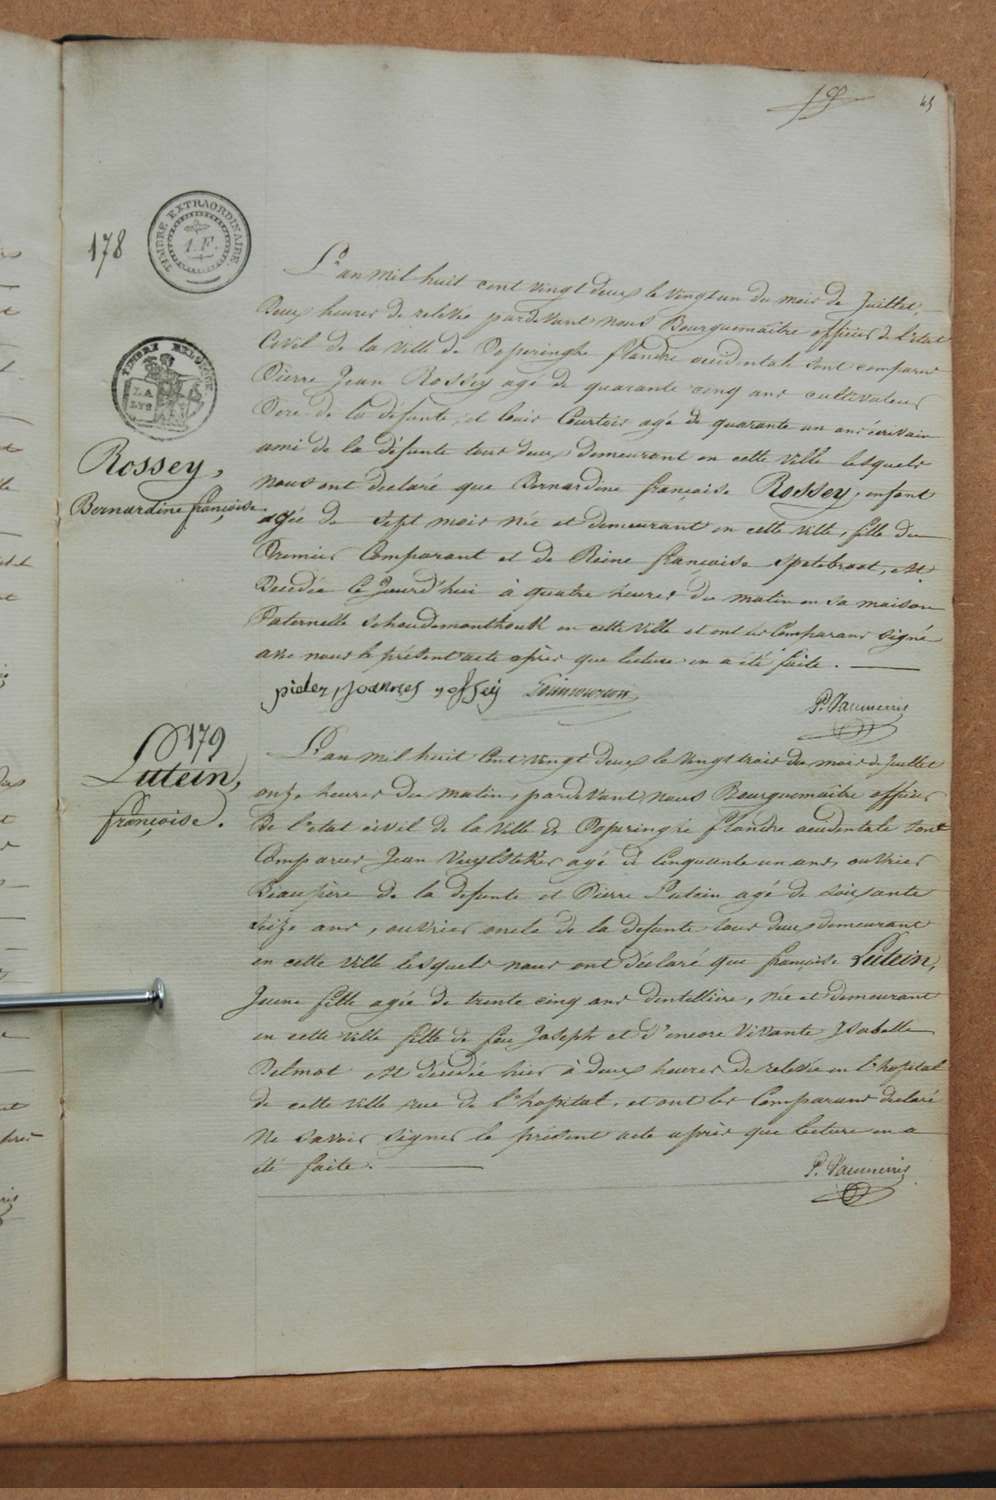 45
178
TIMBRE EXTRAORDINAIRE
1.F.
L'an mil huit cent vingt deux le vingt un du mois de Juillet,
Deux heures de relevée pardevant nous Bourguemaitre officier de l'état
Civil de la ville de Poperinghe flandre occidentale sont comparus
Pierre Jean Rossey agé de quarante cinq ans cultivateur
Pere de la defunte, et Louis Courtois agé de quarante un ans écrivain
ami de la défunte tous deux demeurant en cette ville lesquels
nous ont declaré que Bernardine françoise Rossey, enfant
agée de sept mois née et demeurant en cette ville, fille du
Premier Comparant et de Reine françoise Spetebroot, est
Decedée ce Jourd'hui à quatre heures du matin en sa maison
Paternelle en cette ville et ont les Comparans signé
avec nous le présent acte après que lecture en a été faite.
Rossey,
Bernardine françoise
pieter Joannes rossey
P. Vanmerris
179
Lutein,
françoise.
L'an mil huit Cent vingt deux le vingt trois du mois de Juillet
onze heures du matin, pardevant nous Bourguemaitre officier
De l'état civil de la ville de Poperinghe flandre occidentale sont
Comparus Jean Vuylsteker agé de Cinquante un ans, ouvrier
Beaupère de la defunte et Pierre Lutein agé de soixante
seize ans, ouvrier oncle de la defunte tous deux demeurant
en cette ville lesquels nous ont déclaré que françoise Lutein,
Jeune fille agée de trente cinq ans dentelliere, née et demeurant
en cette ville fille de feu Joseph et d'encore vivante Isabelle
Delmot est decedée hier à deux heures de relevée en l'hopital
de cette ville rue de l'hôpital, et ont les Comparans declaré
Ne savoir signer le présent acte après que lecture en a
été faite.
P. Vanmerris